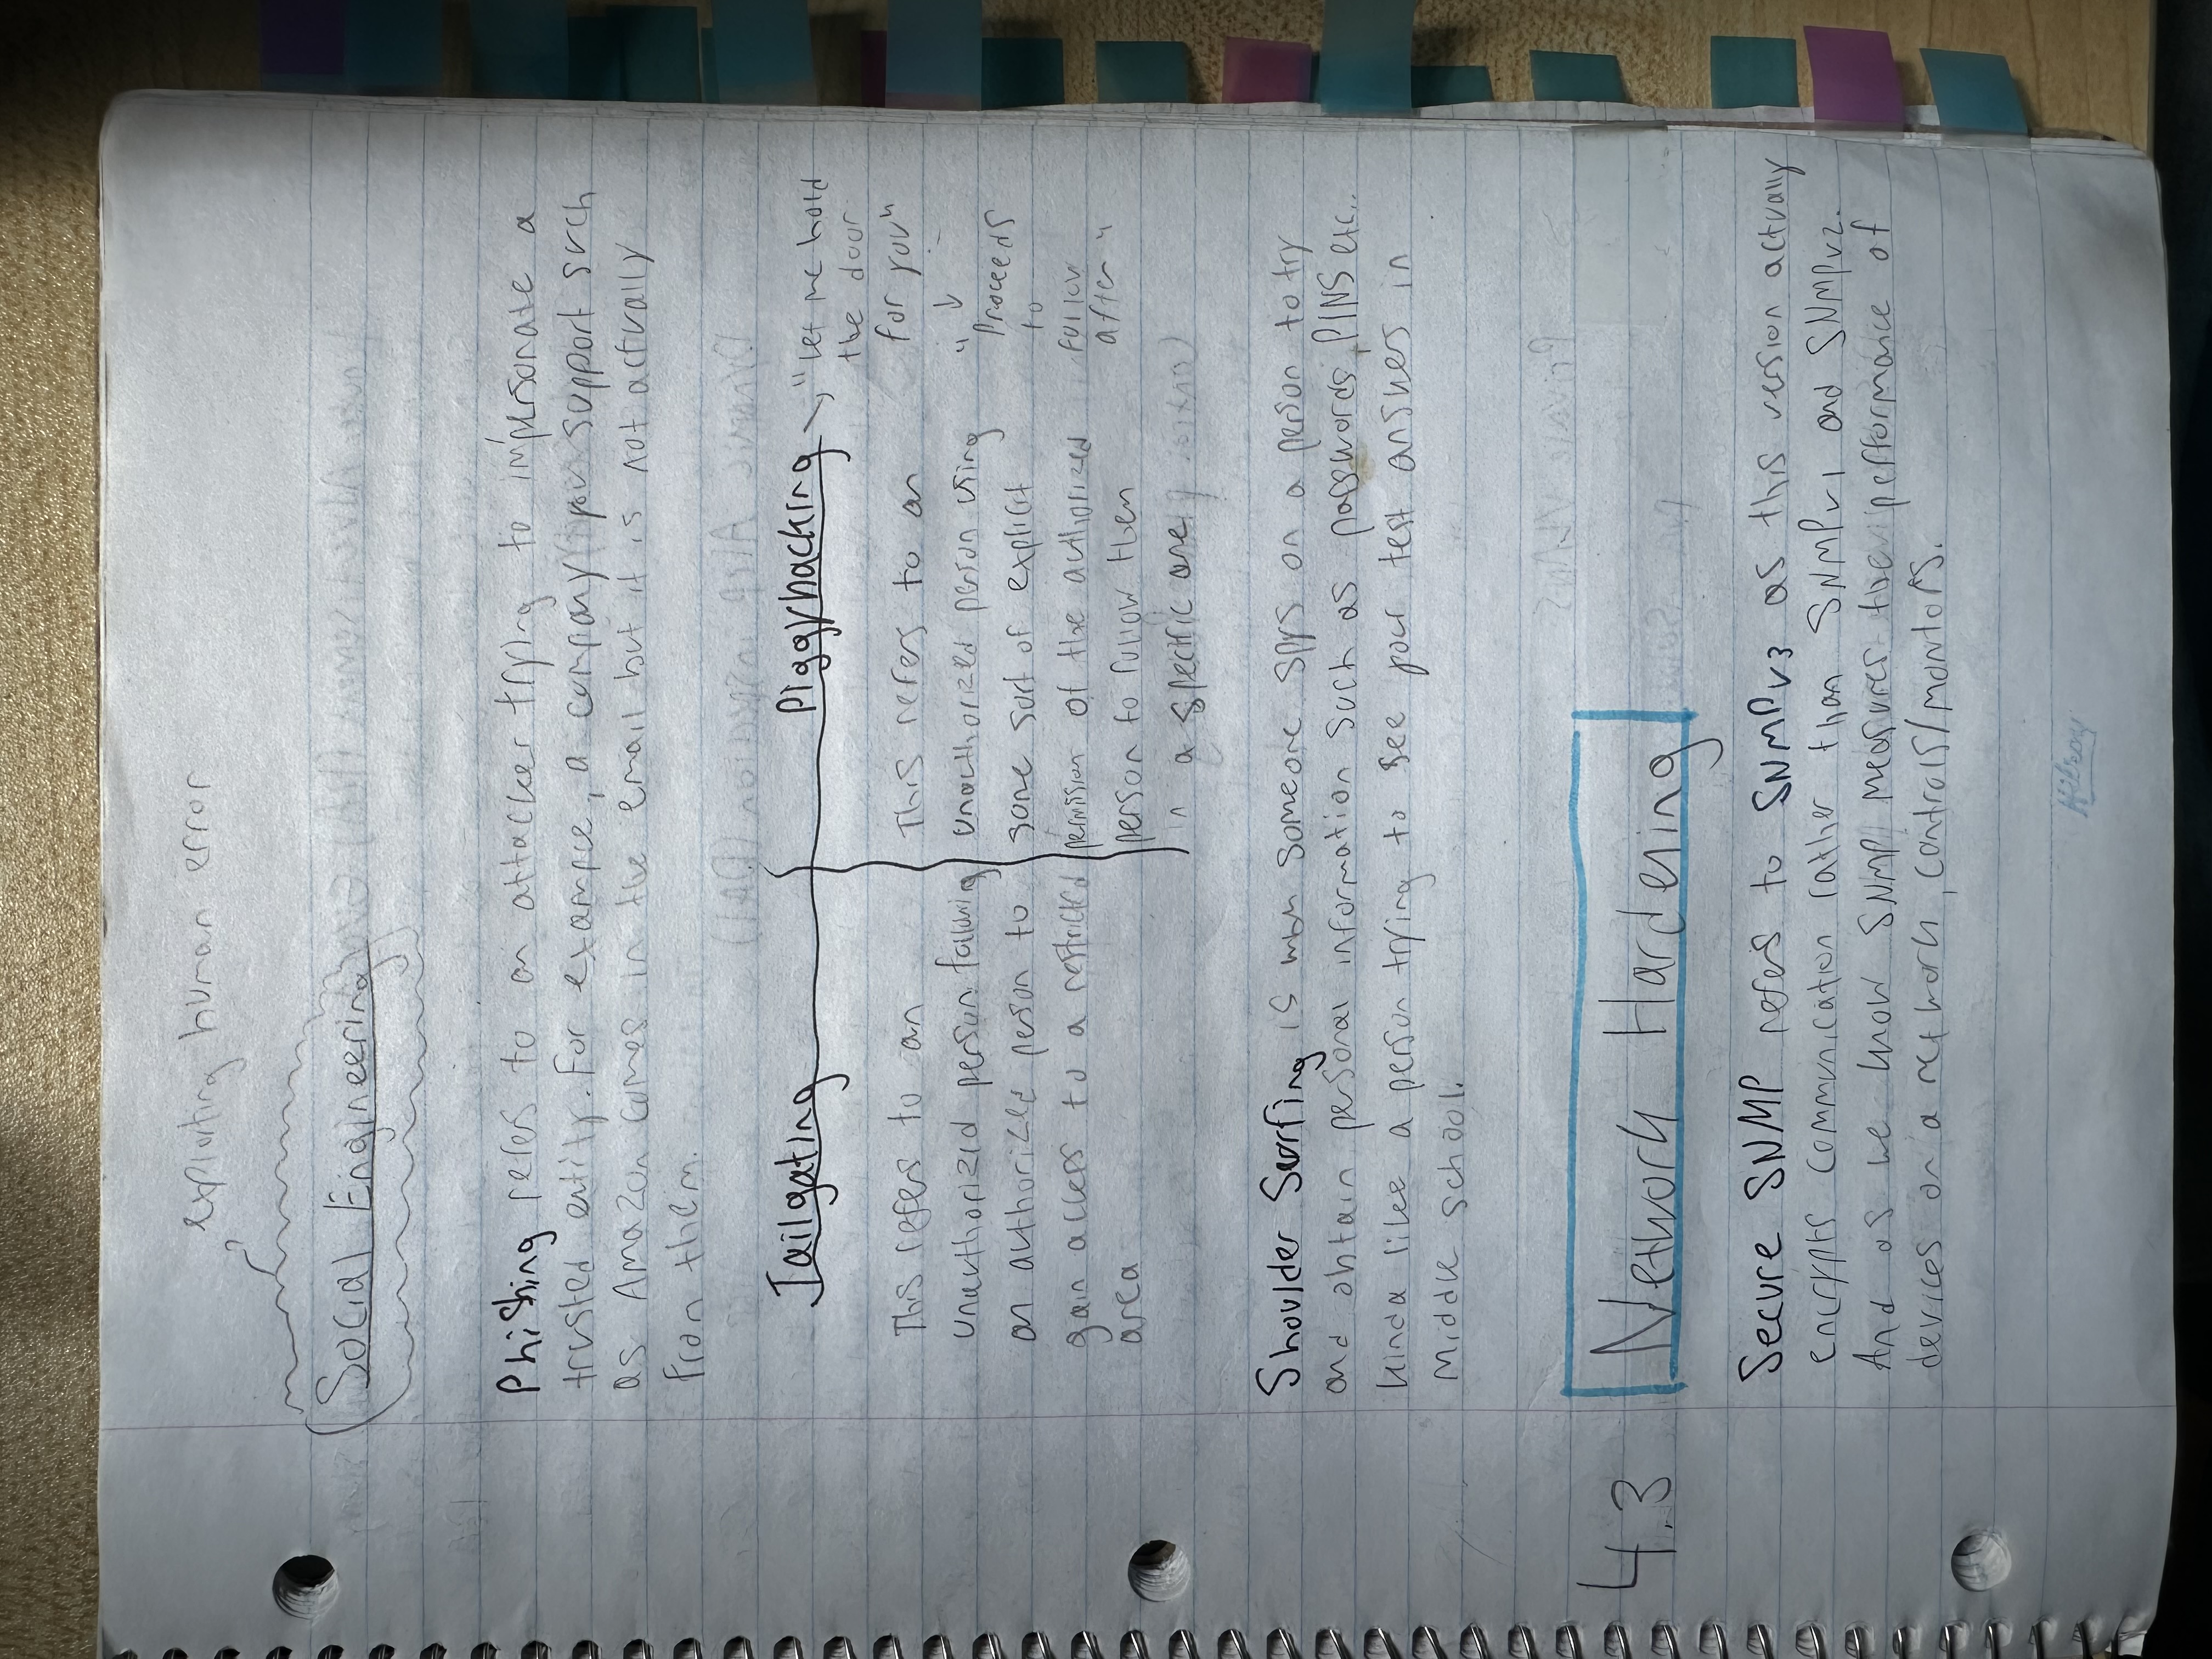 exploiting human error
Social Engineering
Phishing refers to an attacker trying to impersonate a
trusted entity. For example, a company you support such
as Amazon comes in the email but it is not actually
from them.
Tailgating
This refers to an
unauthorized person following
an authorized person to
gain access to a restricted
area
Piggybacking
This refers to an
unauthorized person using
some sort of explicit
permission of the authorized
person to follow them
in a specific area
"Let me hold
the door
for you"
↓
"Proceeds
to
follow
after"
Shoulder Surfing is when someone spys on a person to try
and obtain personal information such as passwords, PINS etc..
kinda like a person trying to see your test answers in
Middle school.
4.3 Network Hardening
Secure SNMP refers to SNMPv3 as this version actually
encrypts communication rather than SNMPv1 and SNMPv2.
And as we know SNMP measures the performance of
devices on a network, controls/monitors.
Hilroy